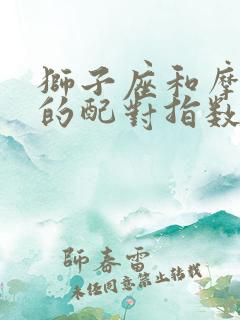 獅子座和摩
的配對指數
師春雷
未经同意禁止转载